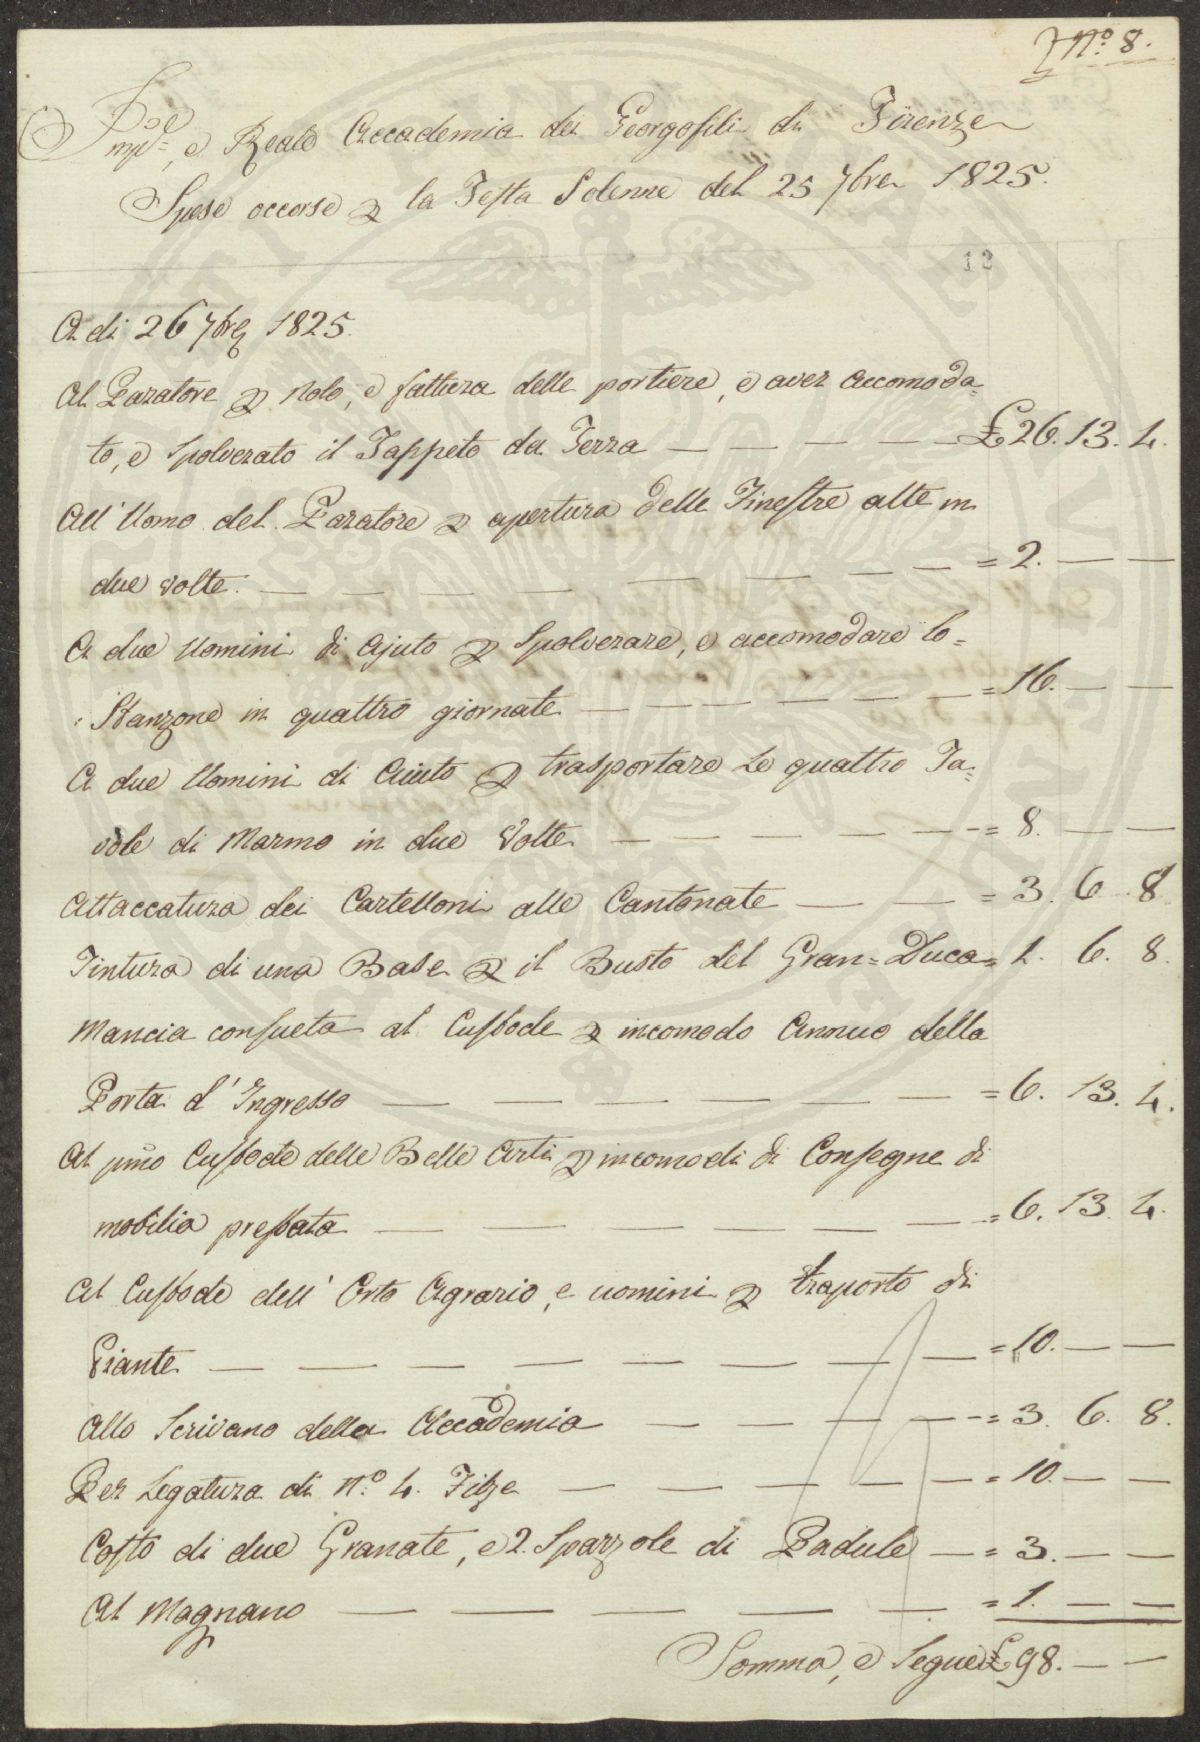 N.° 8.
Imp.le, e Reale Accademia dei Georgofili di Firenze
Spese occorse p la Festa Solenne del 25 7bre 1825.
12
A di 26 7bre 1825.
Al Paratore p Nolo, e fattura delle portiere, e aver accomoda=
to, e spolverato il Tappeto da Terra — — — — — £ 26. 13. 4.
All' Uomo del Paratore p apertura delle Finestre alte in
due volte. — — — — — — — = 2. — —
A due Uomini di Ajuto p Spolverare, e accomodare lo=
Stanzone in quattro giornate — — — — — — = 16. — —
A due Uomini di Aiuto p trasportare Le quattro Ta=
vole di Marmo in due Volte — — — — — = 8. — —
Attaccatura dei Cartelloni alle Cantonate — — = 3. 6. 8
Tintura di una Base p il Busto del Gran=Duca = 1. 6. 8.
Mancia consueta al Custode p incomodo Annuo della
Porta d'Ingresso — — — — — — = 6. 13. 4.
Al pmo Custode delle Belle Arti p incomodi di Consegne di
mobilia prestata — — — — — — = 6. 13. 4.
Al Custode dell' Orto Agrario, e uomini p traporto di
Piante — — — — — — — — = 10. — —
Allo Scrivano della Accademia — — — — = 3. 6. 8.
Per Legatura di N.° 4. Filze — — — — — = 10. — —
Costo di due Granate, e 2. Spazzole di Padule — = 3. — —
Al Magnano — — — — — — = 1. — —
Somma, e Segue £ 98. — —